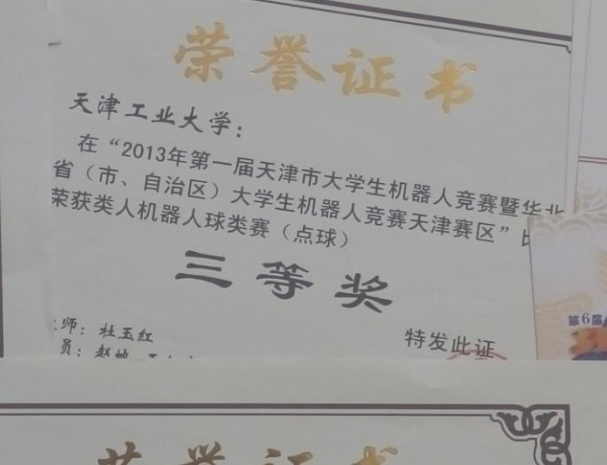 荣誉证书
天津工业大学：
在“2013年第一届天津市大学生机器人竞赛暨华北
省（市、自治区）大学生机器人竞赛天津赛区”比
荣获类人机器人球类赛（点球）
三等奖
师：杜玉红
员：赵
特发此证
第6届
荣誉证书